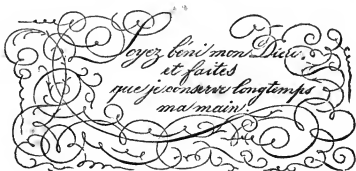 Soyez béni mon Dieu.
et faites
que je conserve longtemps
ma main.